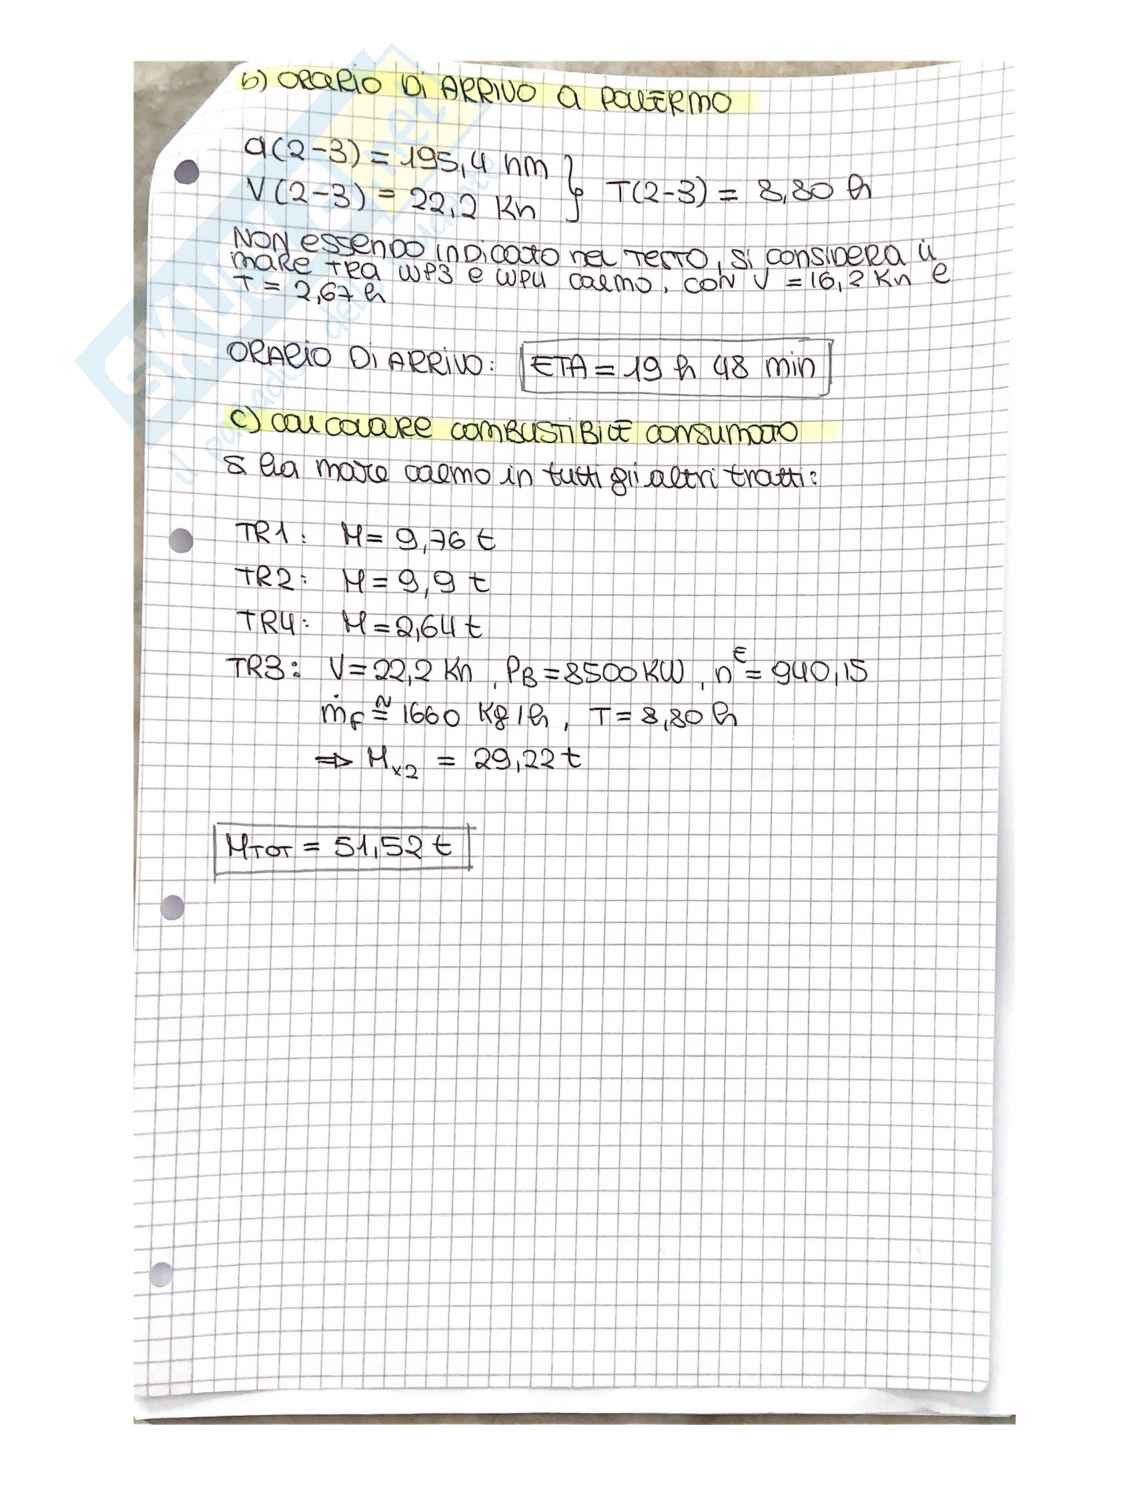 b) ORARIO DI ARRIVO A PALERMO
d(2-3) = 195,4 nm
V(2-3) = 22,2 Kn } T(2-3) = 8,80 h
NON ESSENDO INDICATO NEL TESTO, SI CONSIDERA IL
MARE TRA WP3 E WP4 CALMO, CON V = 16,2 Kn E
T = 2,67 h
ORARIO DI ARRIVO: ETA = 19 h 48 min
c) CALCOLARE COMBUSTIBILE CONSUMATO
Si ha mare calmo in tutti gli altri tratti:
TR1: M = 9,76 t
TR2: M = 9,9 t
TR4: M = 2,64 t
TR3: V = 22,2 Kn, PB = 8500 KW, nE = 940,15
ṁF ≅ 1660 Kg/h, T = 8,80 h
⇒ Mx2 = 29,22 t
MTOT = 51,52 t